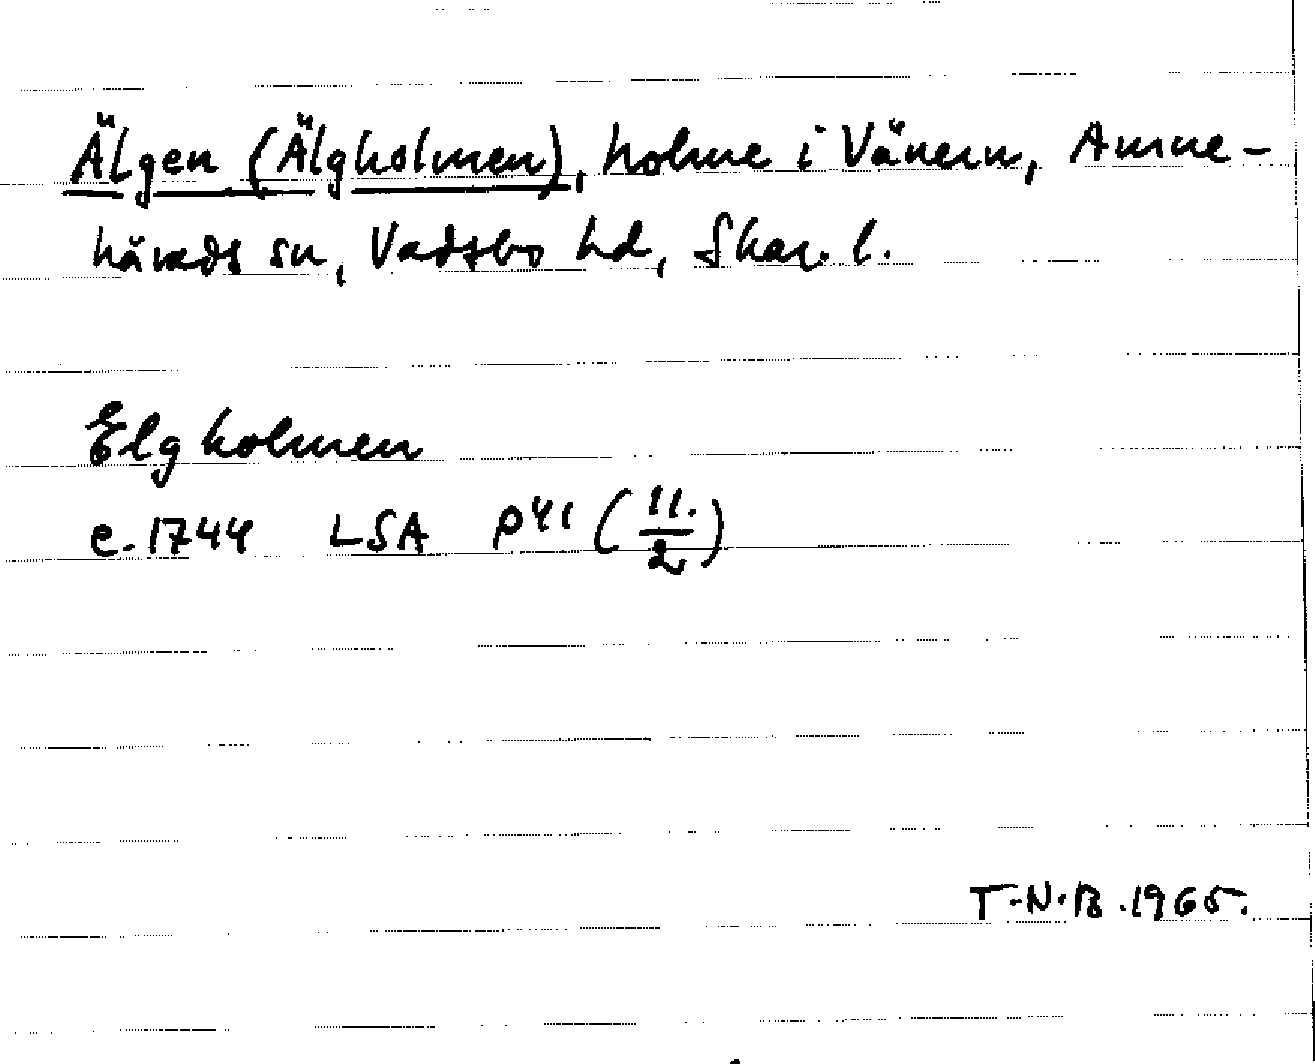 Älgen (Älgholmen), holme i Vänern, Amne-
härads sn, Vadsbo hd, Skar. l.
Elgholmen
c. 1744 LSA P41 (11./2)
T.N.B. 1965.